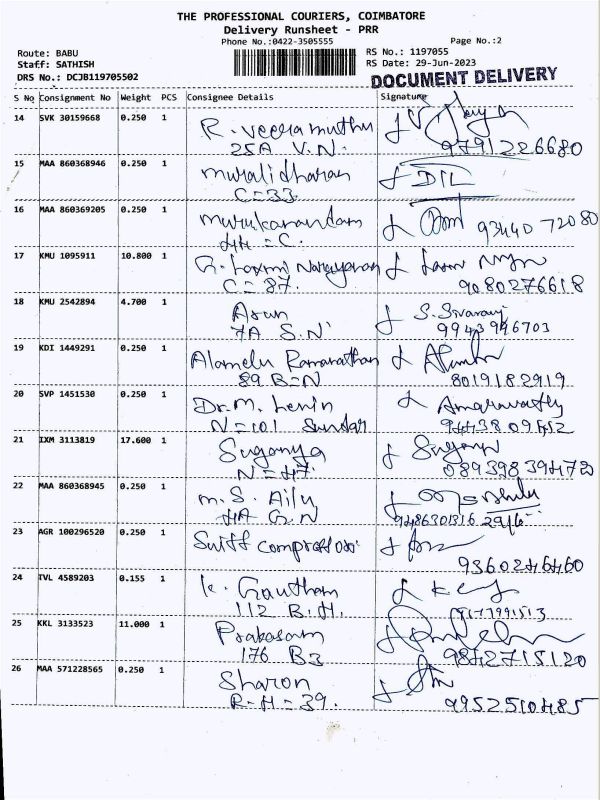 THE PROFESSIONAL COURIERS, COIMBATORE
Delivery Runsheet - PRR
Phone No.:0422-3505555 Page No.:2
Route: BABU RS No.: 1197055
Staff: SATHISH RS Date: 29-Jun-2023
DRS No.: DCJB119705502 DOCUMENT DELIVERY
S No Consignment No Weight PCS Consignee Details Signature
14 SVK 30159668 0.250 1 R. Veeramuthu
25A V.N. 9791226680
15 MAA 860368946 0.250 1 Muralidharan DIL
C=33
16 MAA 860369205 0.250 1 93440 72080
44 = C.
17 KMU 1095911 10.800 1 R. Laxmi Narayanan
C = 87. 9080276618
18 KMU 2542894 4.700 1 Arun
7A S.N 9943996703
19 KDI 1449291 0.250 1 Alamelu Ramanathan
89 B=N 8019182919
20 SVP 1451530 0.250 1 Dr. M. Lenin Amaravathy
N=101 Sundar
21 IXM 3113819 17.600 1 Suganya
N = 47.
22 MAA 860368945 0.250 1 M.S. Ailu
4A G.N
23 AGR 100296520 0.250 1
9360246460
24 IVL 4589203 0.155 1 K. Gautham
112 B.H.
25 KKL 3133523 11.000 1 Prakasam
176 B3 9842715120
26 MAA 571228565 0.250 1 Sharon
R-H=39. 9952510485